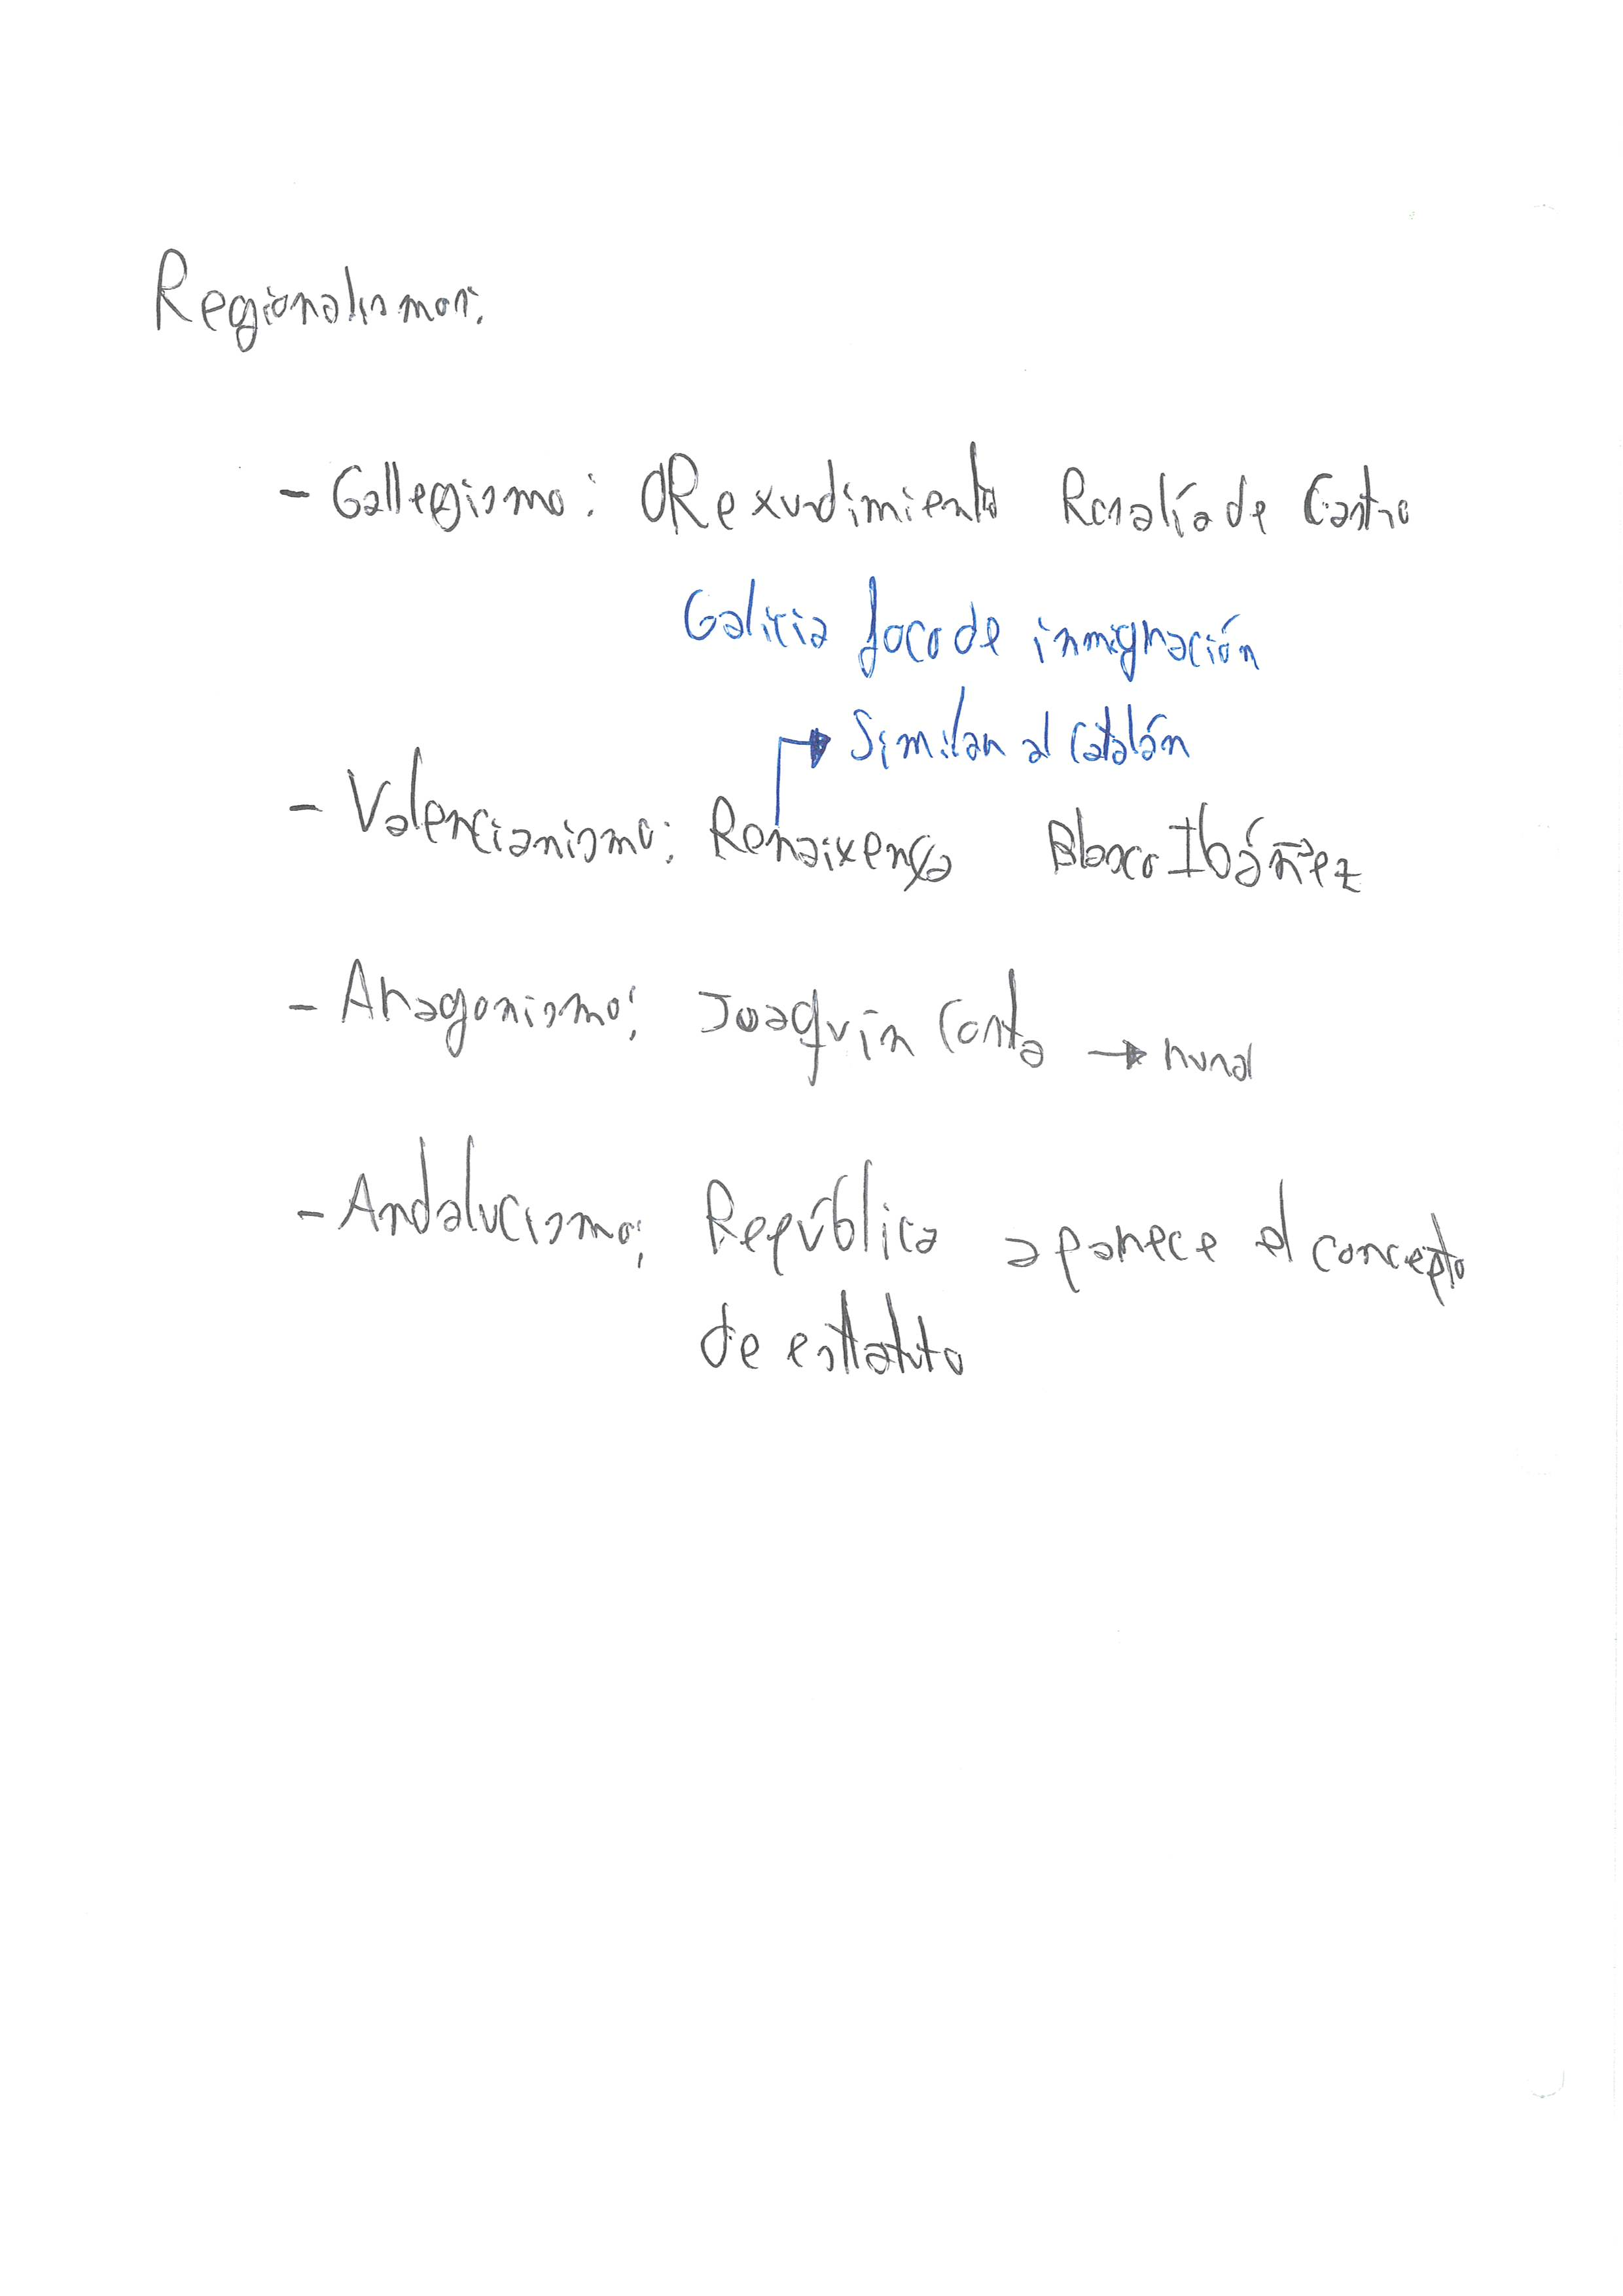 Regionalismos:
- Gallegismo: O Rexurdimiento Rosalía de Castro
Galicia foco de inmigración
→ Similar al Catalán
- Valencianismo: Renaixença Blasco Ibáñez
- Aragonismo: Joaquín Costa → rural
- Andalucismo: República aparece el concepto
de estatuto